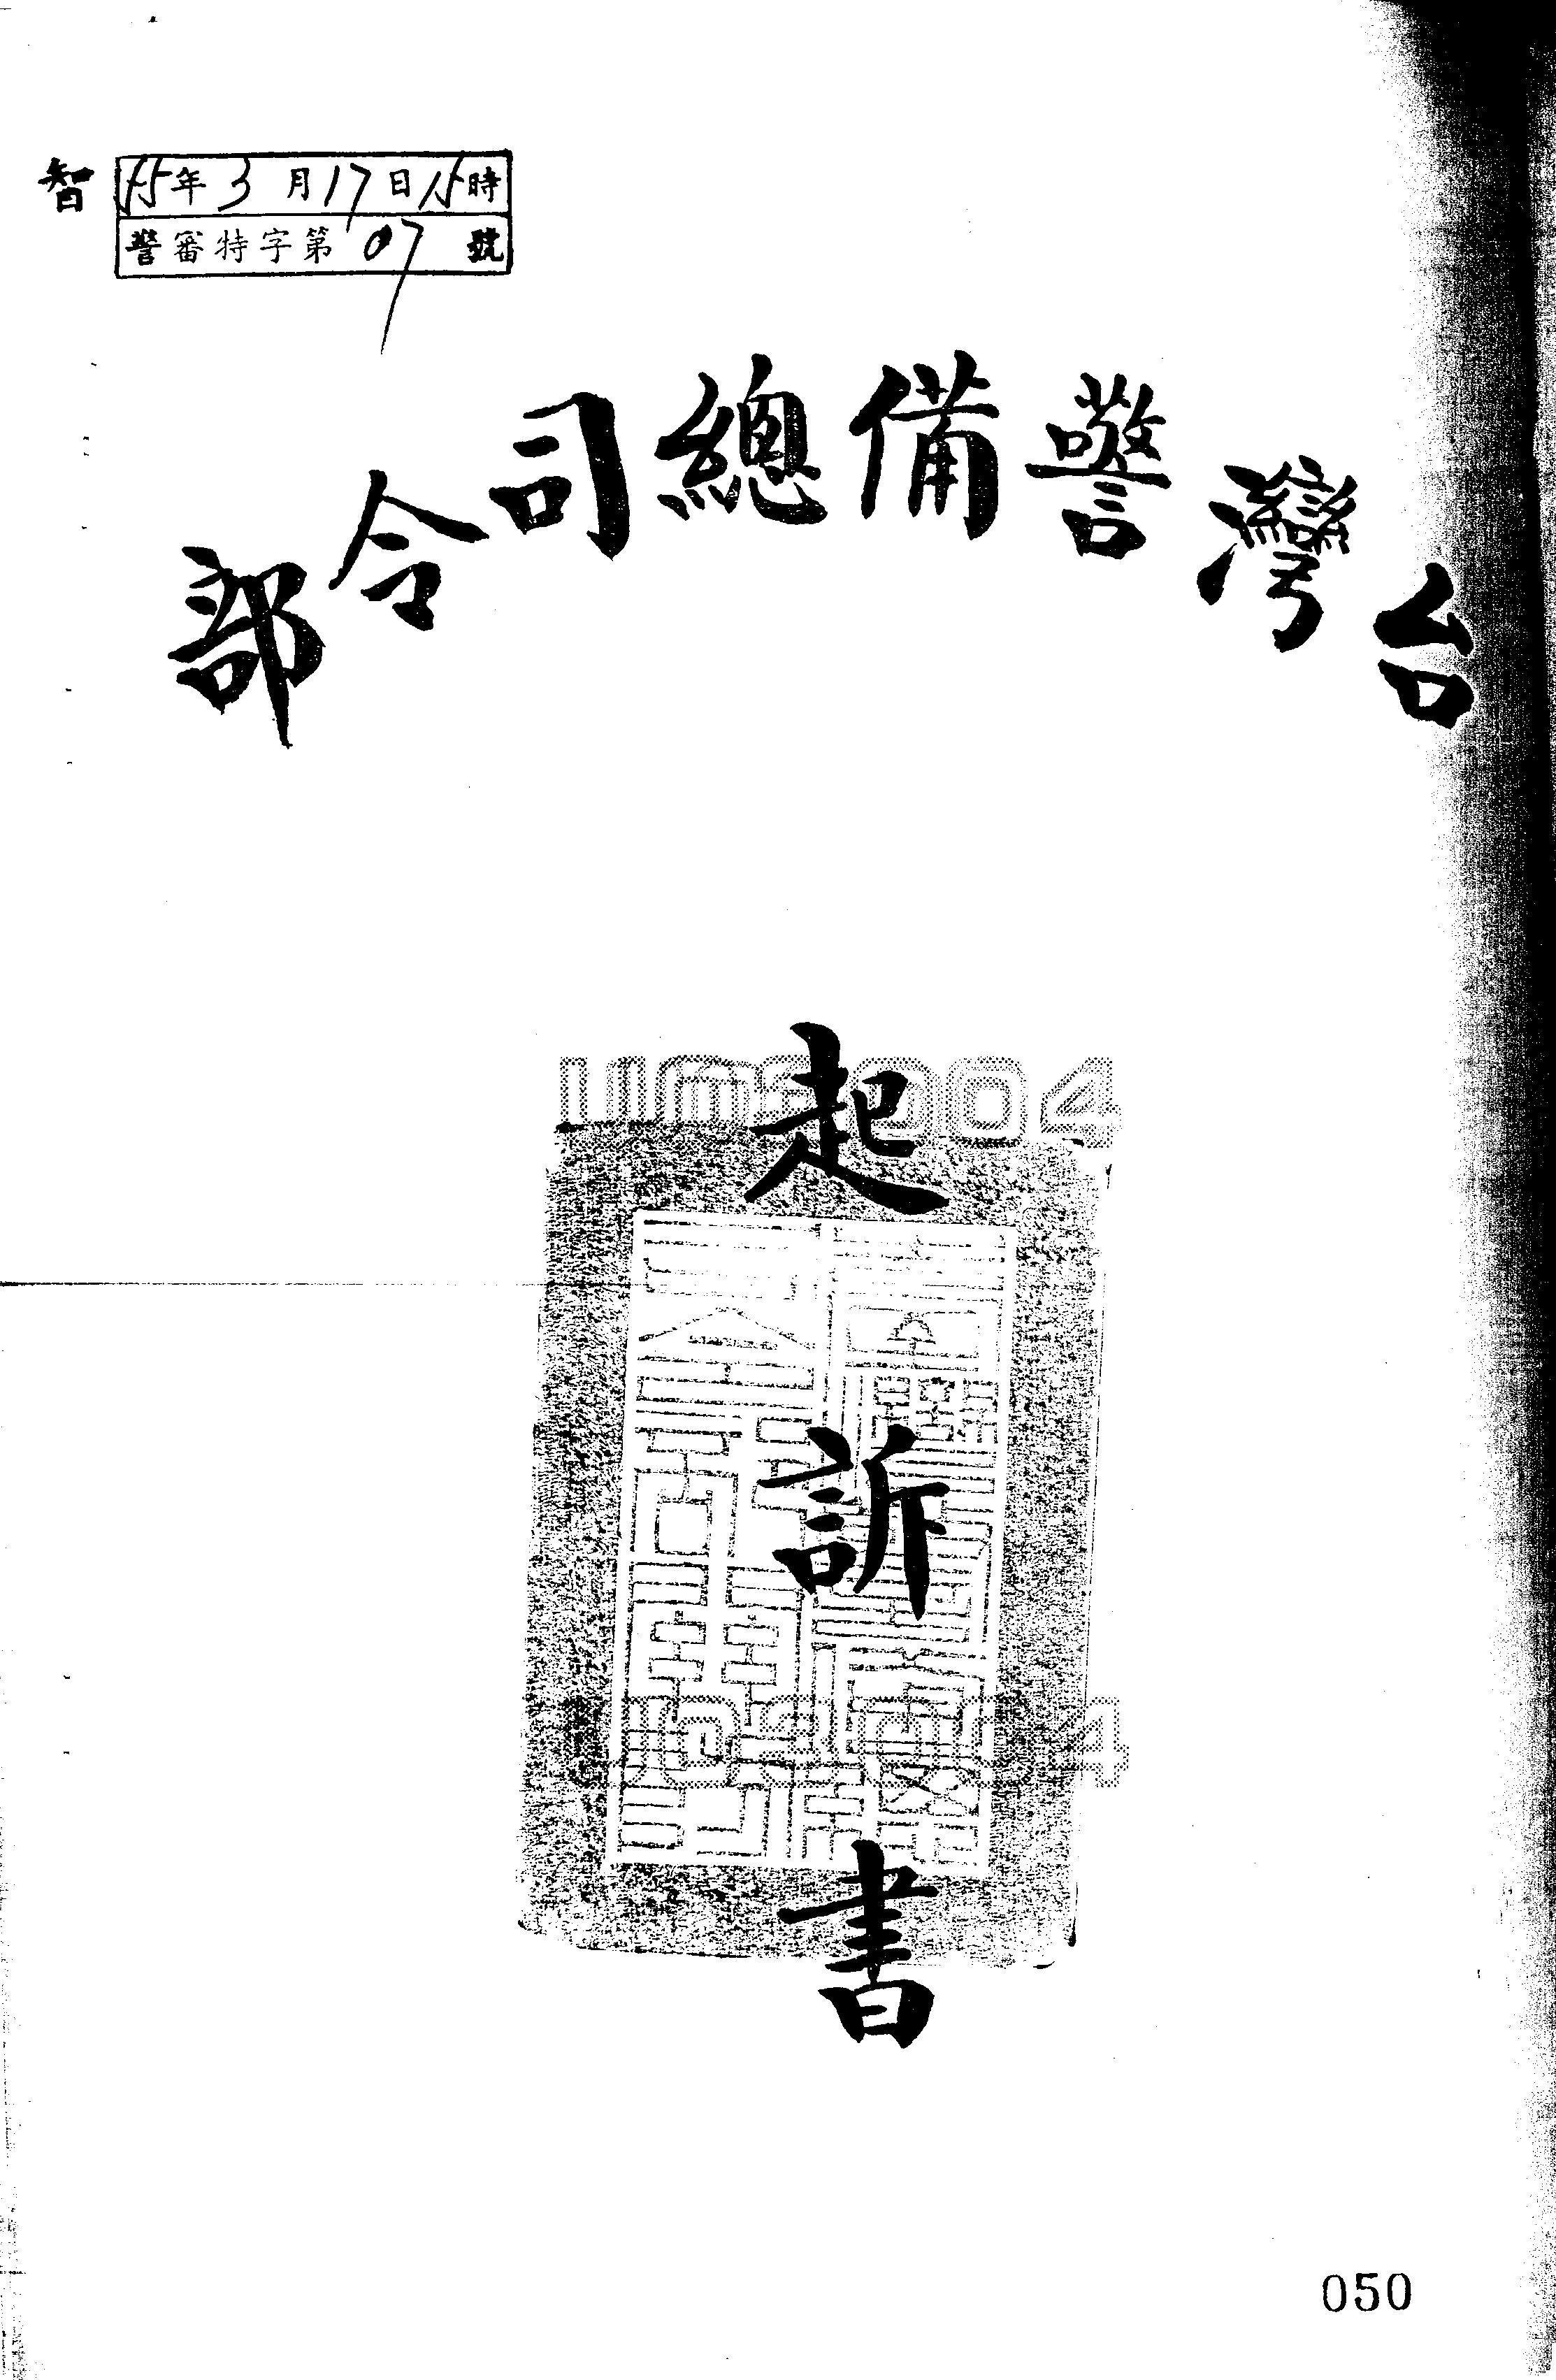 智
55年3月17日15時
警審特字第07號
台灣警備總司令部
起訴書
050